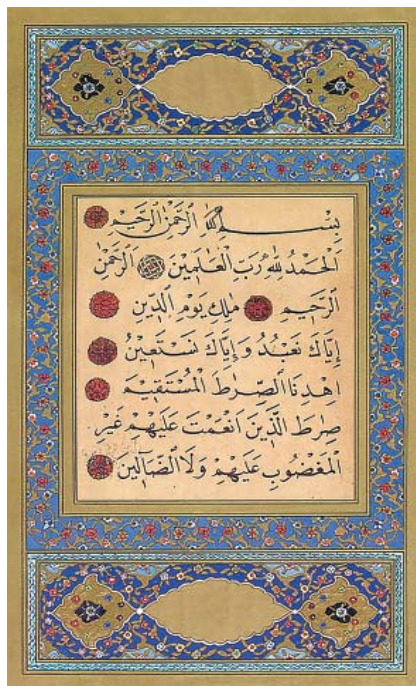 بِسْمِ اللهِ الرَّحْمٰنِ الرَّحٖيمِ
اَلْحَمْدُ لِلّٰهِ رَبِّ الْعَالَمٖينَ اَلرَّحْمٰنِ
الرَّحٖيمِ مَالِكِ يَوْمِ الدّٖينِ
اِيَّاكَ نَعْبُدُ وَاِيَّاكَ نَسْتَعٖينُ
اِهْدِنَا الصِّرَاطَ الْمُسْتَقٖيمَ
صِرَاطَ الَّذٖينَ اَنْعَمْتَ عَلَيْهِمْ غَيْرِ
الْمَغْضُوبِ عَلَيْهِمْ وَلَا الضَّٓالّٖينَ